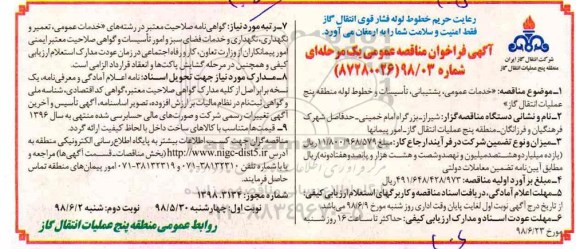 رعایت حریم خطوط لوله فشار قوی انتقال گاز
فقط امنیت و سلامت شما را به ارمغان می آورد.
آگهی فراخوان مناقصه عمومی یک مرحله‌ای
شماره ۹۸/۰۳ (۸۷۲۸۰۰۲۶)
شرکت انتقال گاز ایران
منطقه پنج عملیات انتقال گاز
۱-موضوع مناقصه: «خدمات عمومی، پشتیبانی، تأسیسات و خطوط لوله منطقه پنج
عملیات انتقال گاز»
۲-نام و نشانی دستگاه مناقصه گزار: شیراز-بزرگراه امام خمینی-حدفاصل شهرک
فرهنگیان و فرزانگان-منطقه پنج عملیات انتقال گاز-امور پیمانها
۳-میزان و نوع تضمین شرکت در فرآیند ارجاع کار: مبلغ ۱۱/۸۰۰/۹۶۸/۵۷۹ ریال
(یازده میلیارد و هشتصد میلیون و نهصد و شصت و هشت هزار و پانصد و هفتاد و نه) ریال
مطابق آیین نامه تضمین معاملات دولتی
۴-مبلغ برآورد اولیه مناقصه: ۴۹۱/۶۴۸/۴۲۸/۹۷۳ ریال.
۵-مهلت اعلام آمادگی، دریافت اسناد مناقصه و کاربرگهای استعلام ارزیابی کیفی:
از تاریخ درج آگهی نوبت اول لغایت پایان وقت اداری روز شنبه مورخ ۹۸/۶/۹ می باشد.
۶-مهلت عودت اسناد و مدارک ارزیابی کیفی: حداکثر تا ساعت ۱۶ روز شنبه
مورخ ۹۸/۶/۲۳
۷-رتبه مورد نیاز: گواهی‌نامه صلاحیت معتبر در رشته‌های «خدمات عمومی، تعمیر و
نگهداری، نگهداری و خدمات فضای سبز و امور تأسیسات و گواهی صلاحیت معتبر ایمنی
امور پیمانکاران از وزارت تعاون، کار و رفاه اجتماعی در زمان عودت مدارک استعلام ارزیابی
کیفی و همچنین در مرحله گشایش پاکت‌ها و انعقاد قرارداد الزامی است.
۸-مدارک مورد نیاز جهت تحویل اسناد: نامه اعلام آمادگی و معرفی‌نامه، یک
نسخه برابر اصل از کلیه مدارک گواهی صلاحیت معتبر، گواهی کد اقتصادی، شناسه ملی
و گواهی ثبت نام در نظام مالیات بر ارزش افزوده، تصویر اساسنامه، آگهی تأسیس و آخرین
آگهی تغییرات رسمی شرکت و صورت‌های مالی حسابرسی شده منتهی به سال ۱۳۹۶
۹-قیمت‌ها متناسب با کالاهای ساخت داخل با لحاظ کیفیت ارائه گردد.
مناقصه گران جهت کسب اطلاعات بیشتر به پایگاه اطلاع رسانی الکترونیکی منطقه به
آدرس http://www.nigc-dist5.ir (بخش مناقصات-قسمت آگهی‌ها) مراجعه و
یا با شماره تلفن ۳۸۱۳۲۳۱۰-۰۷۱ و ۳۸۱۳۲۳۱۹-۰۷۱ امور پیمان‌های منطقه تماس
حاصل فرمایند.
شماره مجوز: ۱۳۹۸.۳۱۳۴
نوبت اول: چهارشنبه ۹۸/۵/۳۰ نوبت دوم: شنبه ۹۸/۶/۲
روابط عمومی منطقه پنج عملیات انتقال گاز